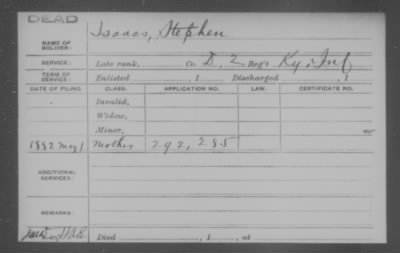 DEAD
NAME OF SOLDIER: Isaacs, Stephen
SERVICE: Late rank, Co. D, 2 Reg't Ky. Inf
TERM OF SERVICE: Enlisted , 1 Discharged , 1
DATE OF FILING. CLASS. APPLICATION NO. LAW. CERTIFICATE NO.
Invalid,
Widow,
Minor,
1882 May 1 Mother 292,285
ADDITIONAL SERVICES:
REMARKS:
Died , 1 , at